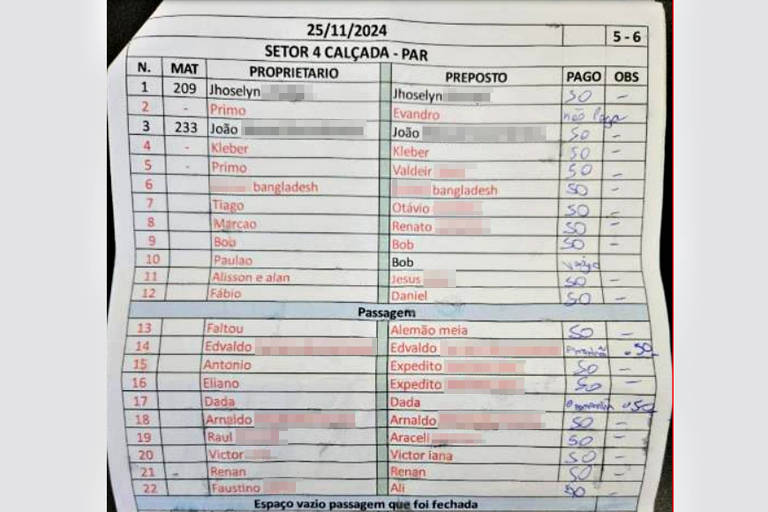 25/11/2024 5 - 6
SETOR 4 CALÇADA - PAR
N. MAT PROPRIETARIO PREPOSTO PAGO OBS
1 209 Jhoselyn Jhoselyn 50 -
2 - Primo Evandro não
3 233 João João 50 -
4 - Kleber Kleber 50 -
5 - Primo Valdeir 50 -
6 bangladesh bangladesh 50 -
7 Tiago Otávio 50 -
8 Marcao Renato 50 -
9 Bob Bob 50 -
10 Paulao Bob
11 Alisson e alan Jesus 50 -
12 Fábio Daniel 50 -
Passagem
13 Faltou Alemão meia 50 -
14 Edvaldo Edvaldo 50
15 Antonio Expedito 50 -
16 Eliano Expedito 50 -
17 Dada Dada 50
18 Arnaldo Arnaldo 50 -
19 Raul Araceli 50 -
20 Victor Victor iana 50 -
21 - Renan Renan 50 -
22 Faustino Ali 50 -
Espaço vazio passagem que foi fechada